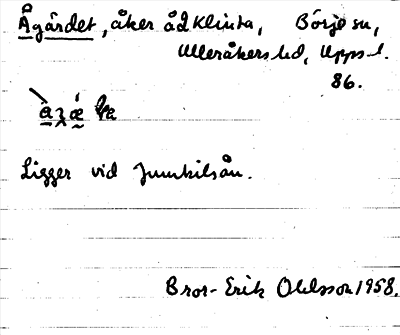 Ågärdet, åker åd Klinta, Börje sn,
Ulleråkers hd, Upps. l.
86.
Ligger vid Jumkilsån.
Bror-Erik Ohlsson 1958.